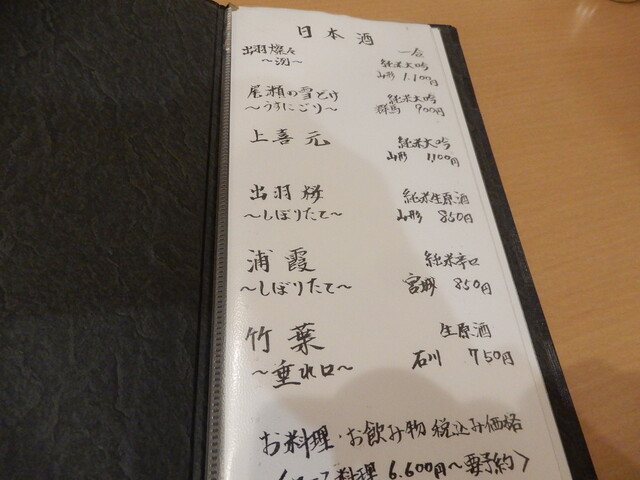 日本酒
一合
出羽燦々 純米大吟
山形 1.100円
尾瀬の雪どけ 純米大吟
〜うすにごり〜 群馬 900円
上喜元 純米大吟
山形 1100円
出羽桜 純米生原酒
〜しぼりたて〜 山形 850円
浦霞 純米辛口
〜しぼりたて〜 宮城 850円
竹葉 生原酒
〜垂れ口〜 石川 750円
お料理・お飲み物 税込み価格
料理 6.600円〜要予約〉